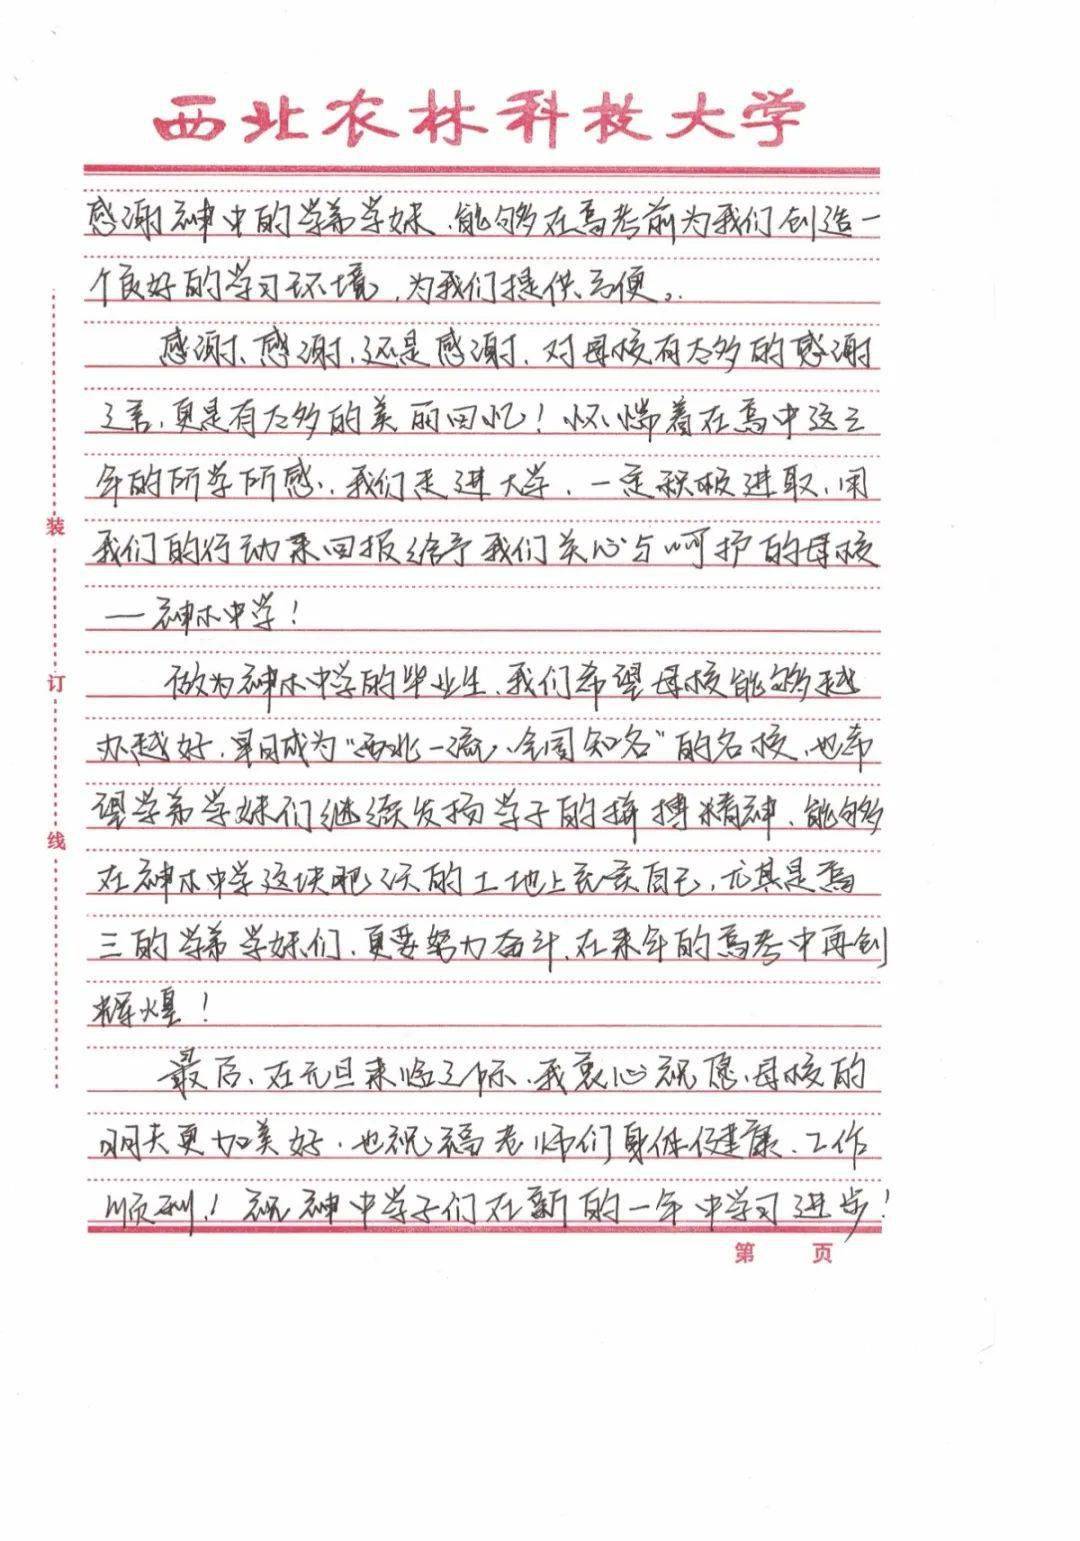 西北农林科技大学
感谢神中的学弟学妹,能够在高考前为我们创造一
个良好的学习环境,为我们提供方便。
感谢、感谢,还是感谢,对母校有太多的感谢
之言,更是有太多的美丽回忆!怀揣着在高中这三
年的所学所感,我们走进大学,一定积极进取,用
我们的行动来回报给予我们关心与呵护的母校
—神木中学!
做为神木中学的毕业生,我们希望母校能够越
办越好,早日成为“西北一流、全国知名”的名校,也希
望学弟学妹们继续发扬学子的拼搏精神,能够
在神木中学这块肥沃的土地上充实自己,尤其是高
三的学弟学妹们,更要努力奋斗,在来年的高考中再创
辉煌!
最后,在元旦来临之际,我衷心祝愿,母校的
明天更加美好,也祝福老师们身体健康、工作
顺利!祝神中学子们在新的一年中学习进步!
装
订
线
第 页